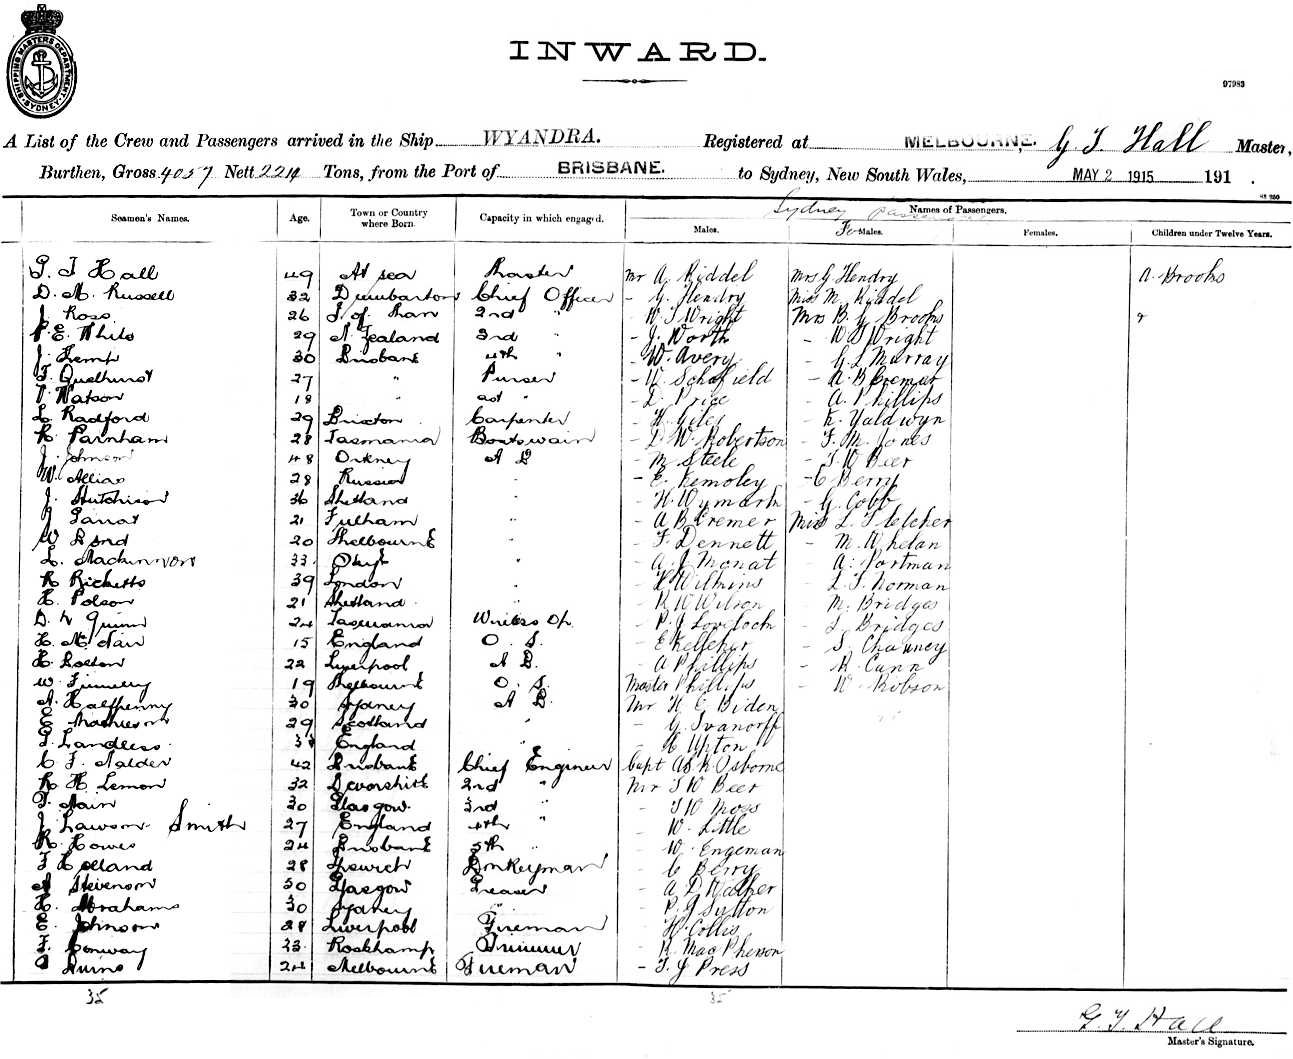 SHIPPING MASTERS DEPARTMENT. SYDNEY.
INWARD.
97983
A List of the Crew and Passengers arrived in the Ship WYANDRA. Registered at MELBOURNE. G T Hall Master,
Burthen, Gross 4057 Nett 2214 Tons, from the Port of BRISBANE. to Sydney, New South Wales, MAY 2 1915 191 .
Sydney passengers
Seamen's Names. Age. Town or Country where Born. Capacity in which engaged. Names of Passengers.
Males. Females. Females. Children under Twelve Years.
G. T Hall 49 At sea Master Mr A. Riddel Mrs G Hendry A. Brooks
D. M. Russell 32 Dumbarton Chief Officer - G. Hendry Miss M. Riddel
J Ross 26 I. of Man 2nd " - W. T Wright Mrs B. G Brooks
P. E. White 29 N. Zealand 3rd " - J. Worth - W T Wright
J. Kemp 30 Brisbane 4th " - W. Avery - G L Murray
T. 27 " Purser - Schofield - A B Cremer
Watson 18 " ast " - L Price - A. Phillips
L. Radford 29 Brixton Carpenter - H. Giles - R. Yaldwyn
R. Parnham 28 Tasmania Boatswain - D W Robertson - F. M. Jones
J. Johnson 48 Orkney A B - M Steele - T W Beer
W. 28 Russia " - E. Kemsley - C Berry
J. Hutchison 36 Shetland - H. Wymark - G. Cobb
J 21 Fulham " - A B Cremer Miss L. Fletcher
W Bond 20 Melbourne - F Dennett - M. Whelan
L. Mackinnon 33 " - A. J Monat - A. Portman
R Ricketts 39 London - Wilkins - L. T. Norman
H. Polson 21 Shetland " - R W Wilson - M. Bridges
D. Quinn 24 Tasmania Wireless Op. - P. J Lovelock - L Bridges
H. McNair 15 England O. S. - E Kelleher - S. Chauncy
H. Lolton 22 Liverpool A B. - A Phillips - R Cann
W. 19 Melbourne O. S. Master Phillips - W. Robson
A. Halfpenny 30 Sydney A B. Mr H E Biden
E Mathieson 29 Scotland " - G Ivanoff
Landless. England " - Upton
C. F. Nalder 42 Brisbane Chief Engineer Capt A. Osborne
R H. Lemon 32 Devonshire 2nd " Mr T W Beer
T. Nain 30 Glasgow. 3rd " - T W Moss
J. Lawson Smith 27 England 4th " - W. Little
R. Howes 24 Brisbane 5th " - W. Engeman
F Holland 28 Ipswich Donkeyman - C Berry
A Stevenson 30 Glasgow Greaser - A D Walker
H. Abrahams 30 Sydney " - P. J Sutton
C. Johnson 28 Liverpool Fireman - H Collis
F. Conway 23 Rockhamp. Trimmer - R. MacPherson
24 Melbourne Fireman - T. J Press
35 35
G. T. Hall
Master's Signature.